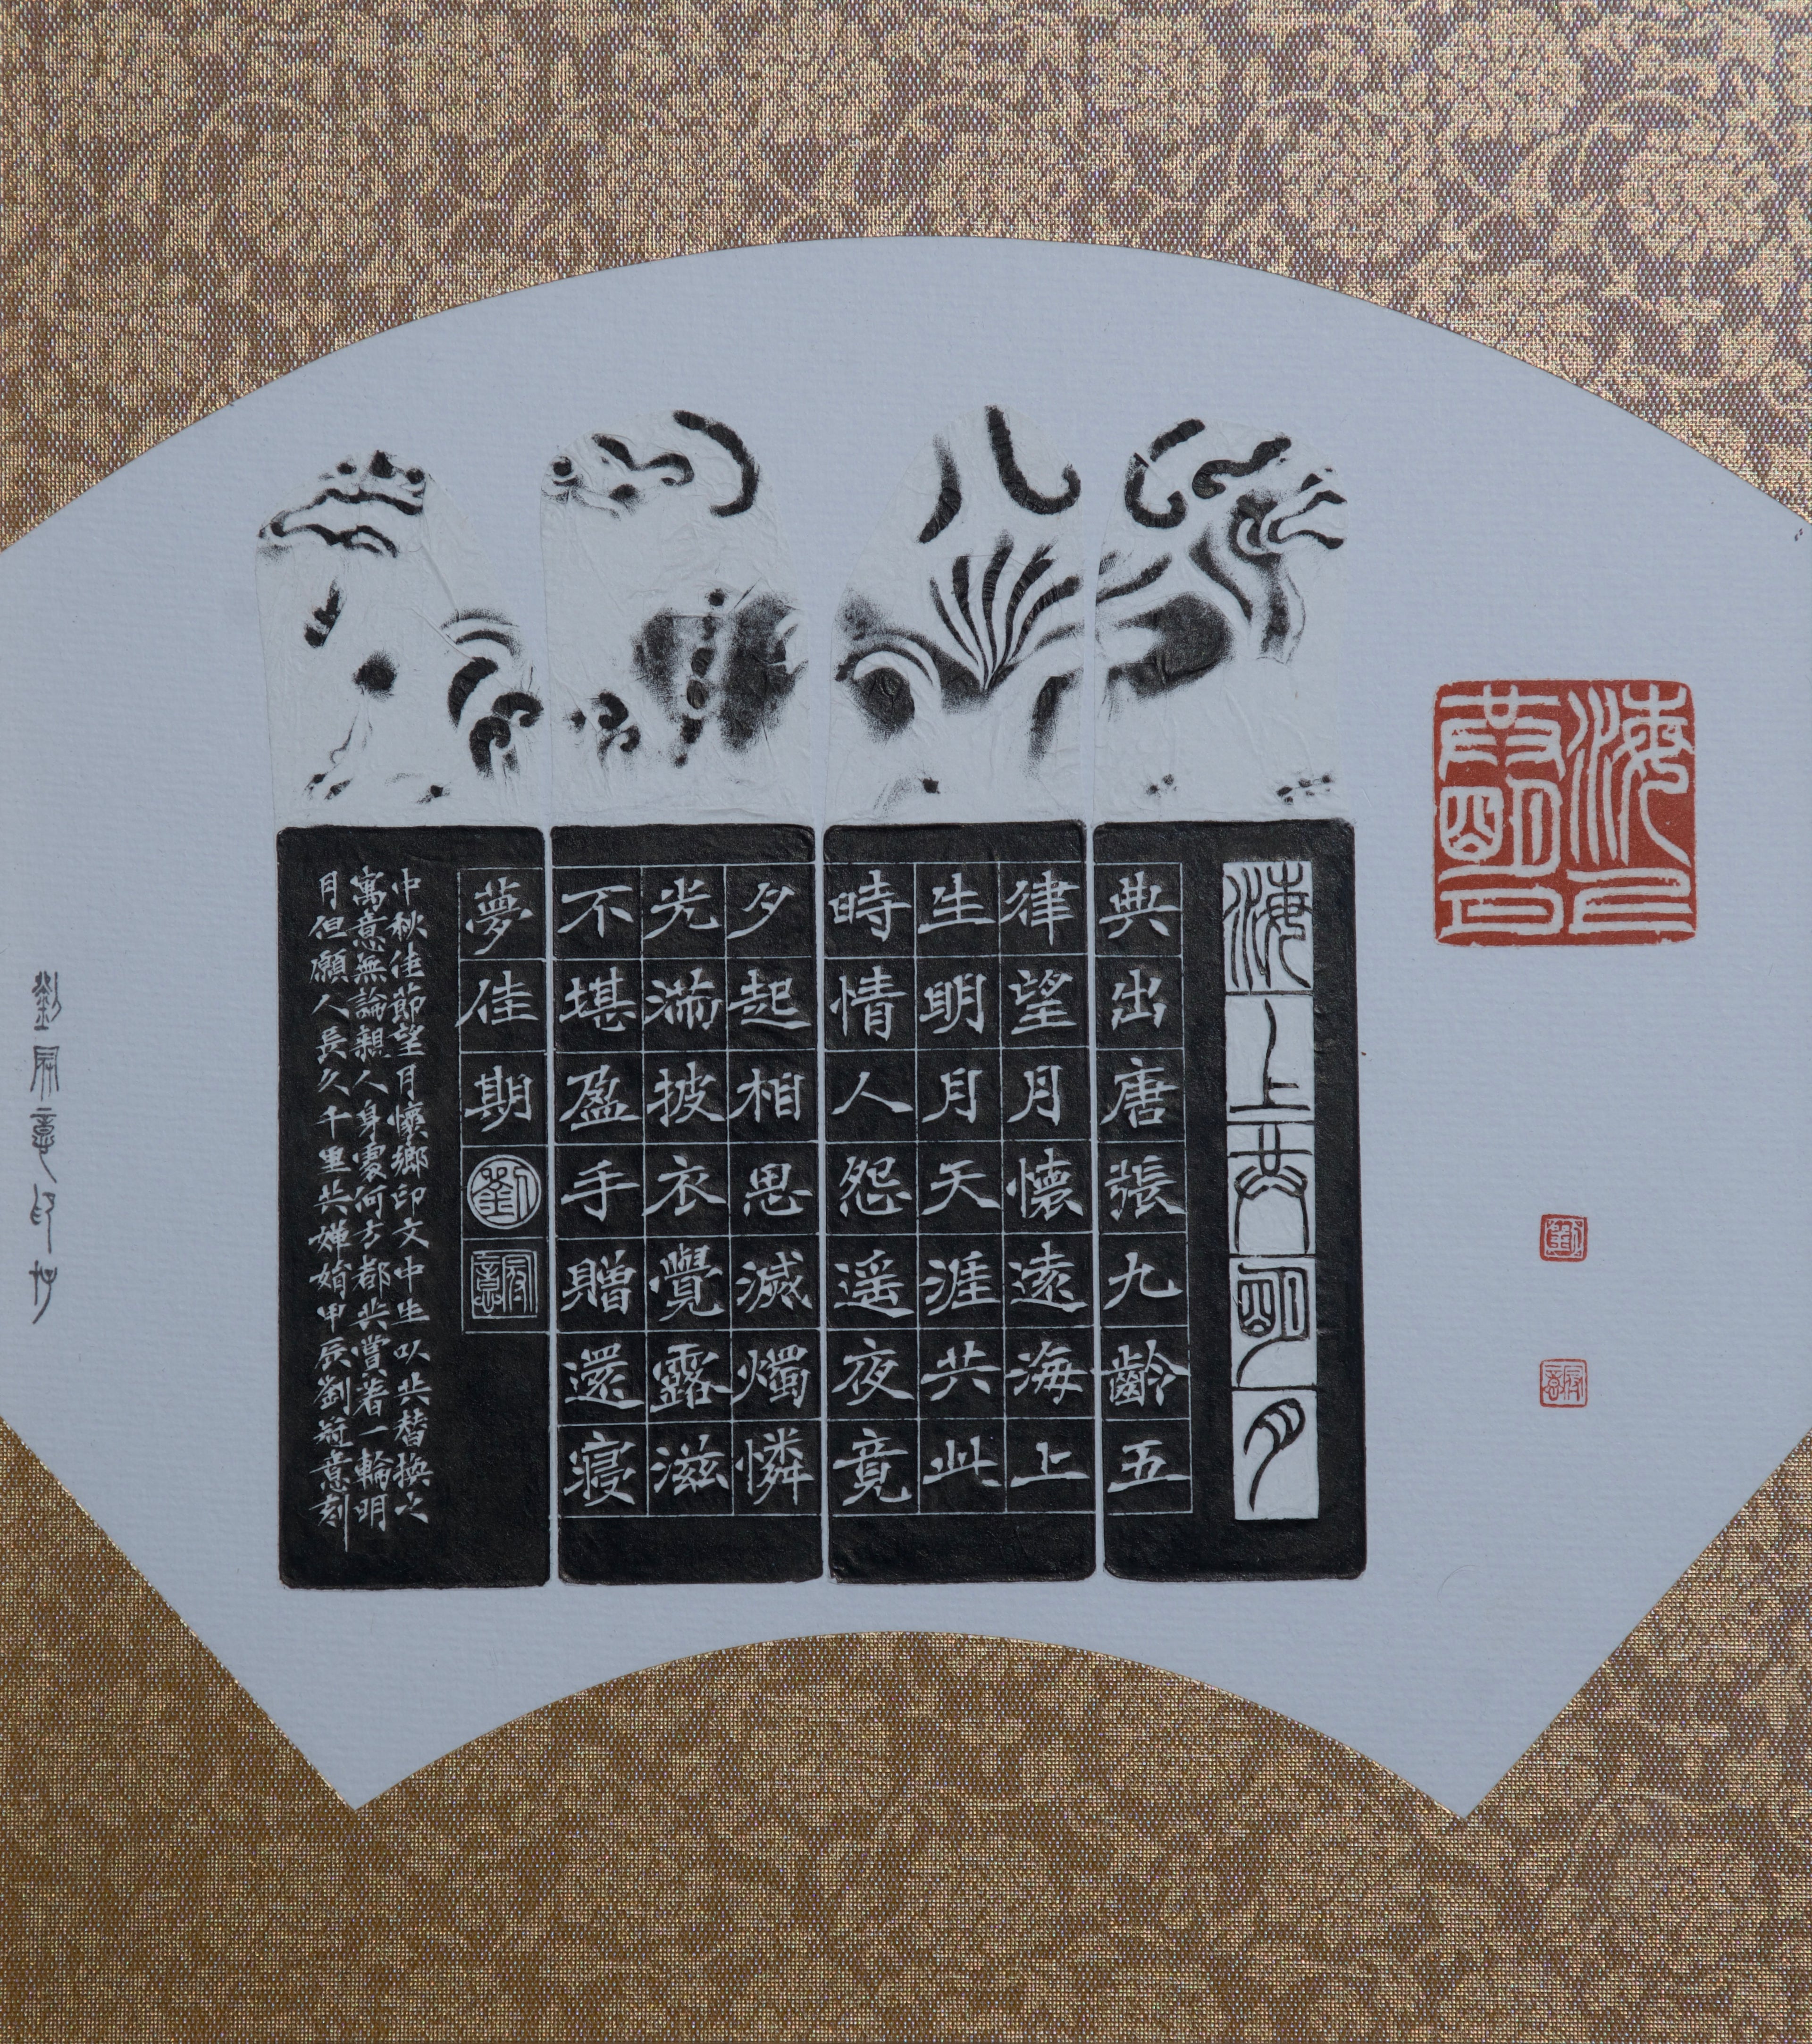 海上
共明月
劉
冠意
海上共明月
典出唐張九齡五
律望月懷遠海上
生明月天涯共此
時情人怨遥夜竟
夕起相思滅燭憐
光滿披衣覺露滋
不堪盈手贈還寢
夢佳期
劉
冠意
中秋佳節望月懷鄉印文中生以共替換之
寓意無論親人身處何方都共賞着一輪明
月但願人長久千里共嬋娟甲辰劉冠意刻
劉冠意印艸